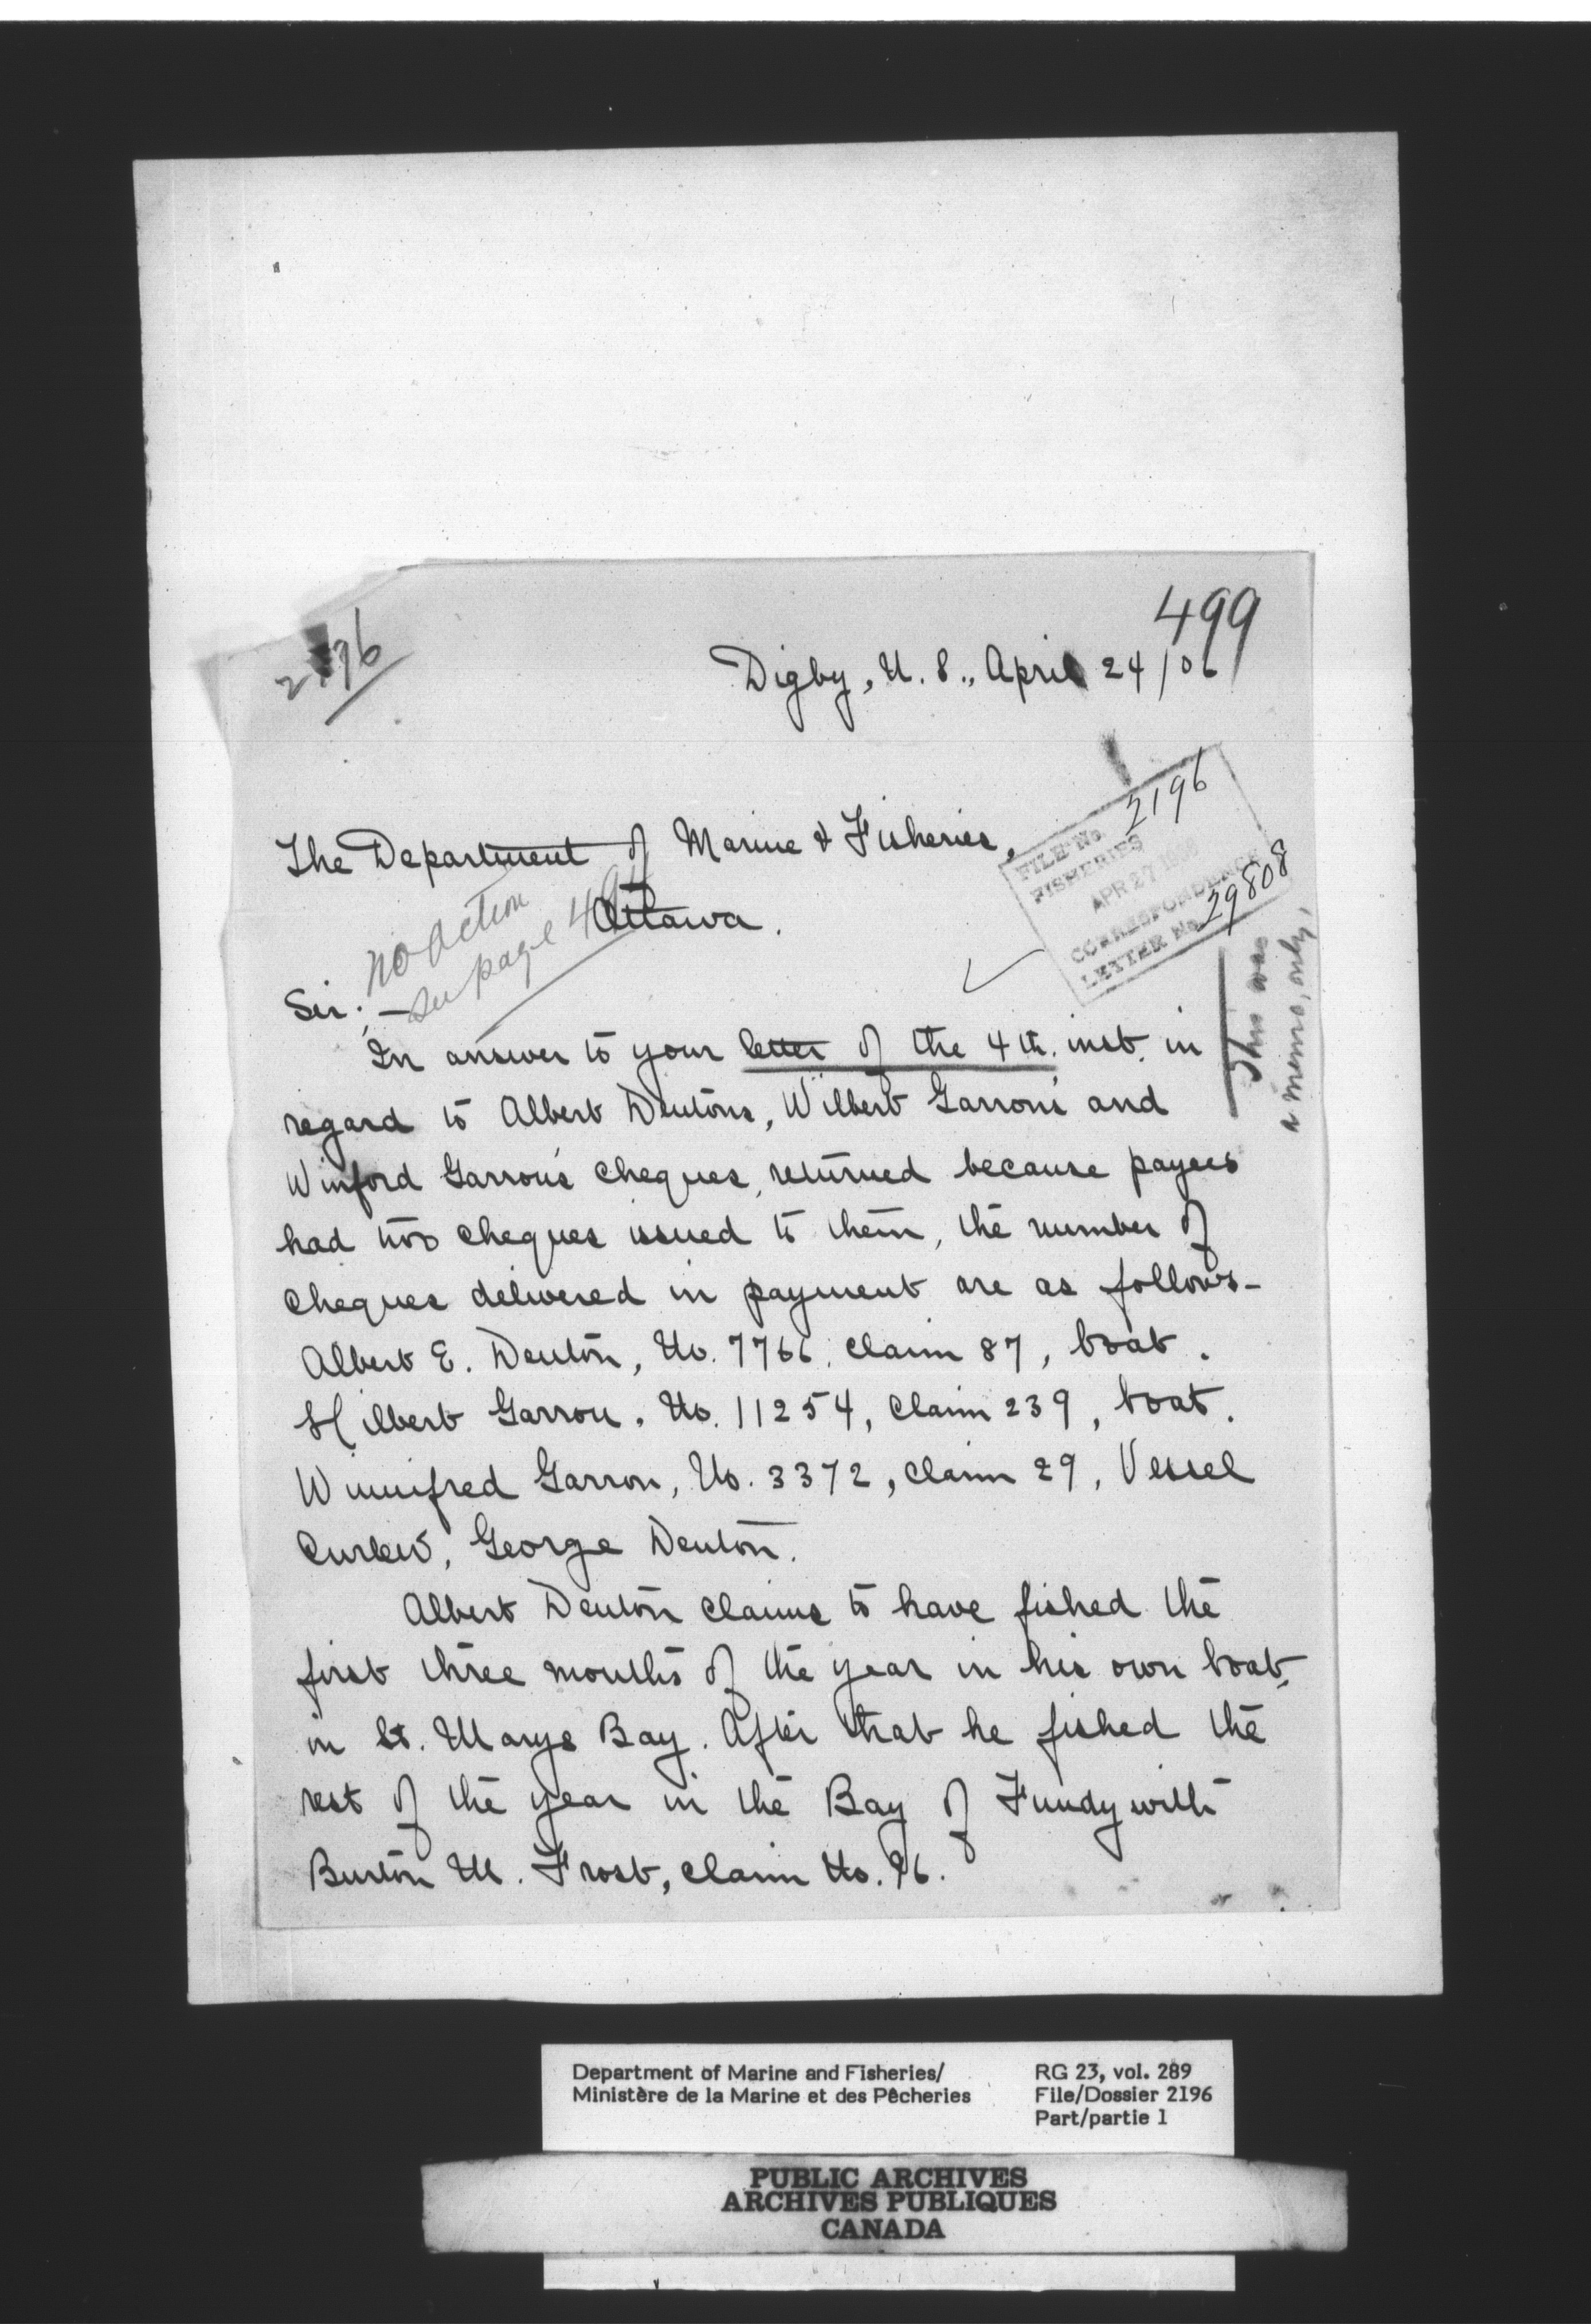 499
2196
Digby, N. S., April 24/06
The Department of Marine & Fisheries,
Ottawa.
no action
see page
FILE No. 2196
FISHERIES
APR 27 1906
CORRESPONDENCE
LETTER No. 29808
This was
a memo, only,
Sir:—
In answer to your letter of the 4th. inst. in
regard to Albert Dentons, Wilbert Garron's and
Winford Garron's cheques, returned because payees
had two cheques issued to them, the number of
cheques delivered in payment are as follows-
Albert E. Denton, No. 7766, claim 87, boat.
Hilbert Garron, No. 11254, claim 239, boat.
Winnifred Garron, No. 3372, claim 29, Vessel
Curlew, George Denton.
Albert Denton claims to have fished the
first three months of the year in his own boat,
in St. Marys Bay. After that he fished the
rest of the year in the Bay of Fundy with
Burton M. Frost, claim No. 96.
Department of Marine and Fisheries/
Ministère de la Marine et des Pêcheries
RG 23, vol. 289
File/Dossier 2196
Part/partie 1
PUBLIC ARCHIVES
ARCHIVES PUBLIQUES
CANADA